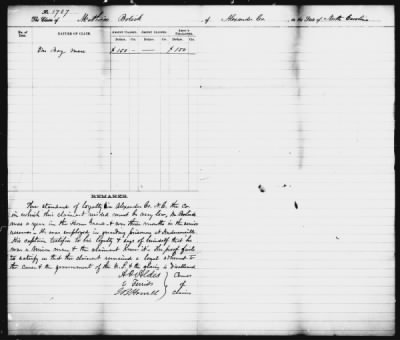 No. 1787
The Claim of Matthias Bolick of Alexander Co. in the State of North Carolina
No. of Item. NATURE OF CLAIM. AMOUNT CLAIMED. AMOUNT ALLOWED. AMOUNT DISALLOWED.
Dollars. Cts. Dollars. Cts. Dollars. Cts.
One Bay mare $150 — — $150
REMARKS.
The standard of loyalty in Alexander Co. N.C. the Co.
in which this claimant resided must be very low, Mr Bolick
was a year in the Home Guard & was three months in the senior
reserves. He was employed in guarding prisoners at
His captain testifies to his loyalty & says of himself that he
was a Union man & the claimant knew it. The proof fails
to satisfy us that the claimant remained a loyal adherent to
the cause & the government of the U.S. & the claim is disallowed
A. O. Aldis
O. Ferriss
J. B. Howell
Comrs
of
Claims